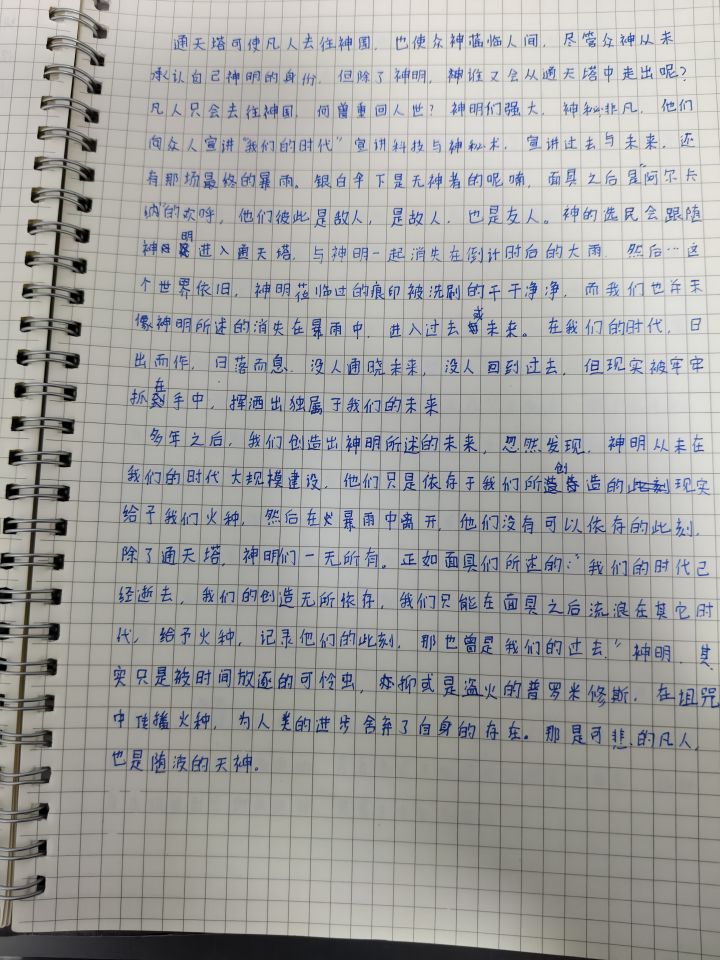 通天塔可使凡人去往神国，也使众神莅临人间，尽管众神从未
承认自己神明的身份，但除了神明，神谁又会从通天塔中走出呢？
凡人只会去往神国，何曾重回人世？神明们强大，神秘非凡，他们
向众人宣讲“我们的时代”宣讲科技与神秘术，宣讲过去与未来，还
有那场最终的暴雨。银白伞下是无神者的呢喃，面具之后是“阿尔卡
纳”的欢呼，他们彼此是敌人，是故人，也是友人。神的选民会跟随
神明进入通天塔，与神明一起消失在倒计时后的大雨，然后…这
个世界依旧，神明莅临过的痕印被洗刷的干干净净，而我们也并未
像神明所述的消失在暴雨中，进入过去或未来。在我们的时代，日
出而作，日落而息，没人通晓未来，没人回到过去，但现实被牢牢
抓在手中，挥洒出独属于我们的未来
多年之后，我们创造出神明所述的未来，忽然发现，神明从未在
我们的时代大规模建设，他们只是依存于我们所创造的现实
给予我们火种，然后在暴雨中离开，他们没有可以依存的此刻，
除了通天塔，神明们一无所有。正如面具们所述的：“我们的时代已
经逝去，我们的创造无所依存，我们只能在面具之后流浪在其它时
代，给予火种，记录他们的此刻，那也曾是我们的过去”神明，其
实只是被时间放逐的可怜虫，亦抑或是盗火的普罗米修斯，在诅咒
中传播火种，为人类的进步舍弃了自身的存在。那是可悲的凡人，
也是随波的天神。